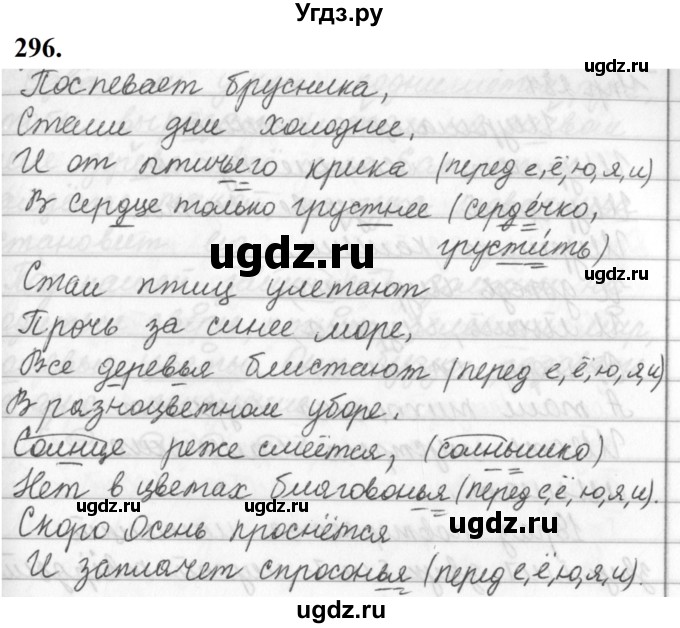 Угдз.ру
296.
ugdz.ru
Поспевает брусника,
Стали дни холоднее,
ugdz.ru
И от птичьего крика (перед е, ё, ю, я, и)
В сердце только грустнее (сердечко,
ugdz.ru
грустить)
ugdz.ru
Стаи птиц улетают
Прочь за синее море,
Все деревья блистают (перед е, ё, ю, я, и)
В разноцветном уборе.
ugdz.ru
Солнце реже смеётся, (солнышко)
Нет в цветах благовонья (перед е, ё, ю, я, и).
Скоро Осень проснётся
ugdz.ru
И заплачет спросонья (перед е, ё, ю, я, и).
ugdz.ru